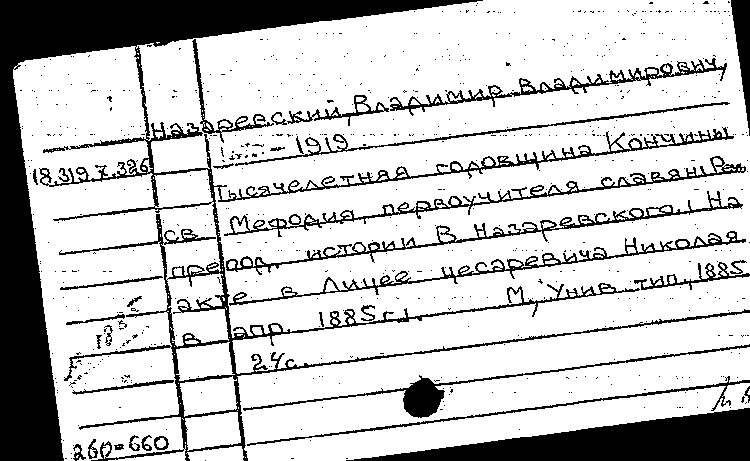 Назаревский, Владимир Владимирович,
– 1919.
18.319.7.326
Тысячелетняя годовщина Кончины
св. Мефодия, первоучителя славян: Речь
препод. истории В. Назаревского. / На
акте в Лицее цесаревича Николая
в апр. 1885 г. /. М., Унив. тип., 1885
24с.
260=660